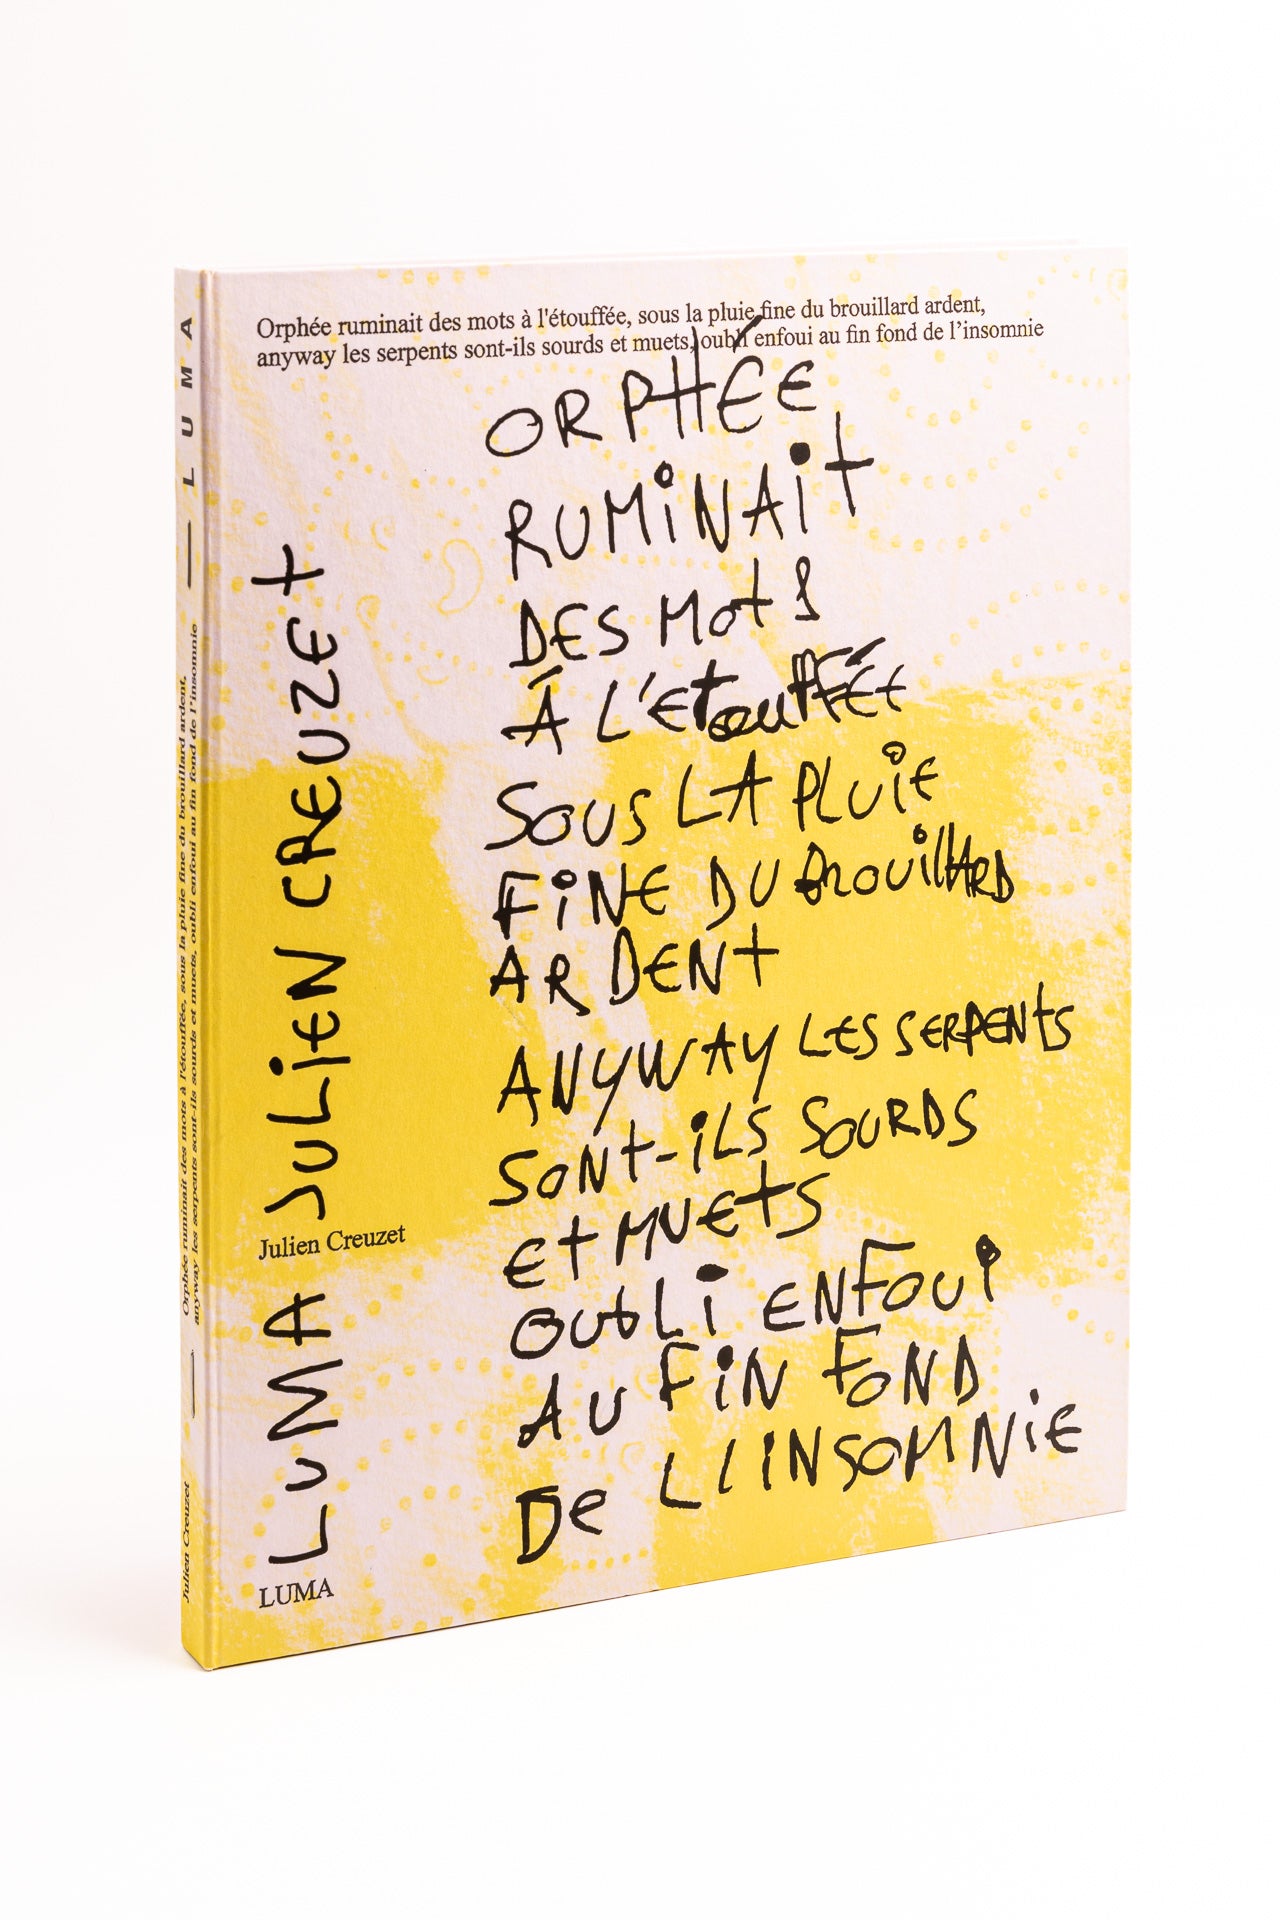 Orphée ruminait des mots à l'étouffée, sous la pluie fine du brouillard ardent,
anyway les serpents sont-ils sourds et muets, oubli enfoui au fin fond de l'insomnie
ORPHÉE
RUMINAIT
DES MOTS
À L'ETOUFFÉE
SOUS LA PLUIE
FINE DU BROUILLARD
ARDENT
ANYWAY LES SERPENTS
SONT-ILS SOURDS
ET MUETS
OUBLI ENFOUI
AU FIN FOND
DE L'INSOMNIE
LUMA JULIEN CREUZET
Julien Creuzet
LUMA
Julien Creuzet — Orphée ruminait des mots à l'étouffée, sous la pluie fine du brouillard ardent,
anyway les serpents sont-ils sourds et muets, oubli enfoui au fin fond de l'insomnie — LUMA